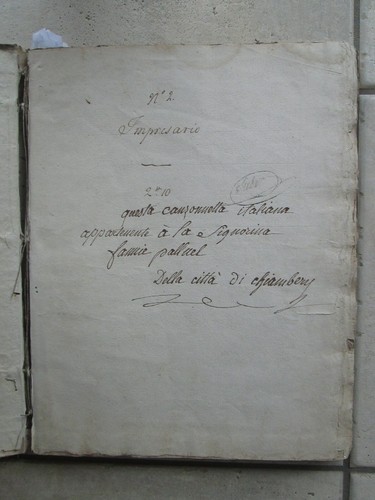 Nº 2.
Impresario
2º 10
questa canzonetta italiana
appartiente à la e Signorina
fannie palluel
Della città di chiambery